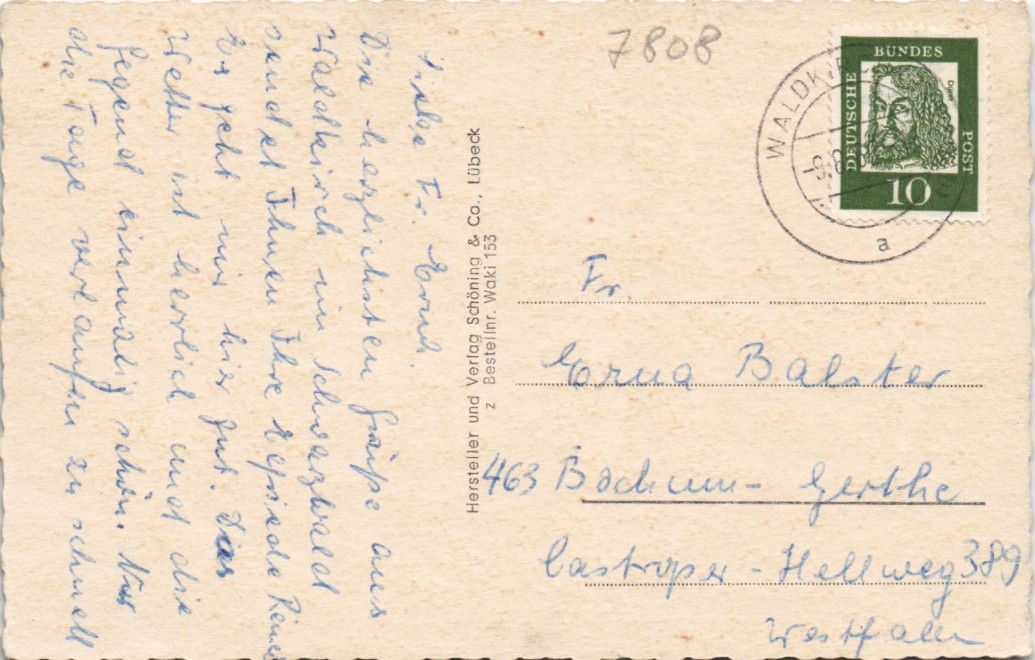 7808
DEUTSCHE
BUNDES
POST
10
WALDKIRCH
a
Liebe Fr. Ernd.
Die herzlichsten Grüße aus
Waldkirch im Schwarzwald
sendet Ihnen Ihre
Es geht mir hier gut. Das
Wetter ist herrlich und die
Gegend einmalig schön. Nur
die Tage verlaufen zu schnell
Hersteller und Verlag Schöning & Co., Lübeck
z Bestellnr. Waki 153
Fr.
Erna Balster
463 Bochum- Gerthe
Castroper-Hellweg 389
Westfalen